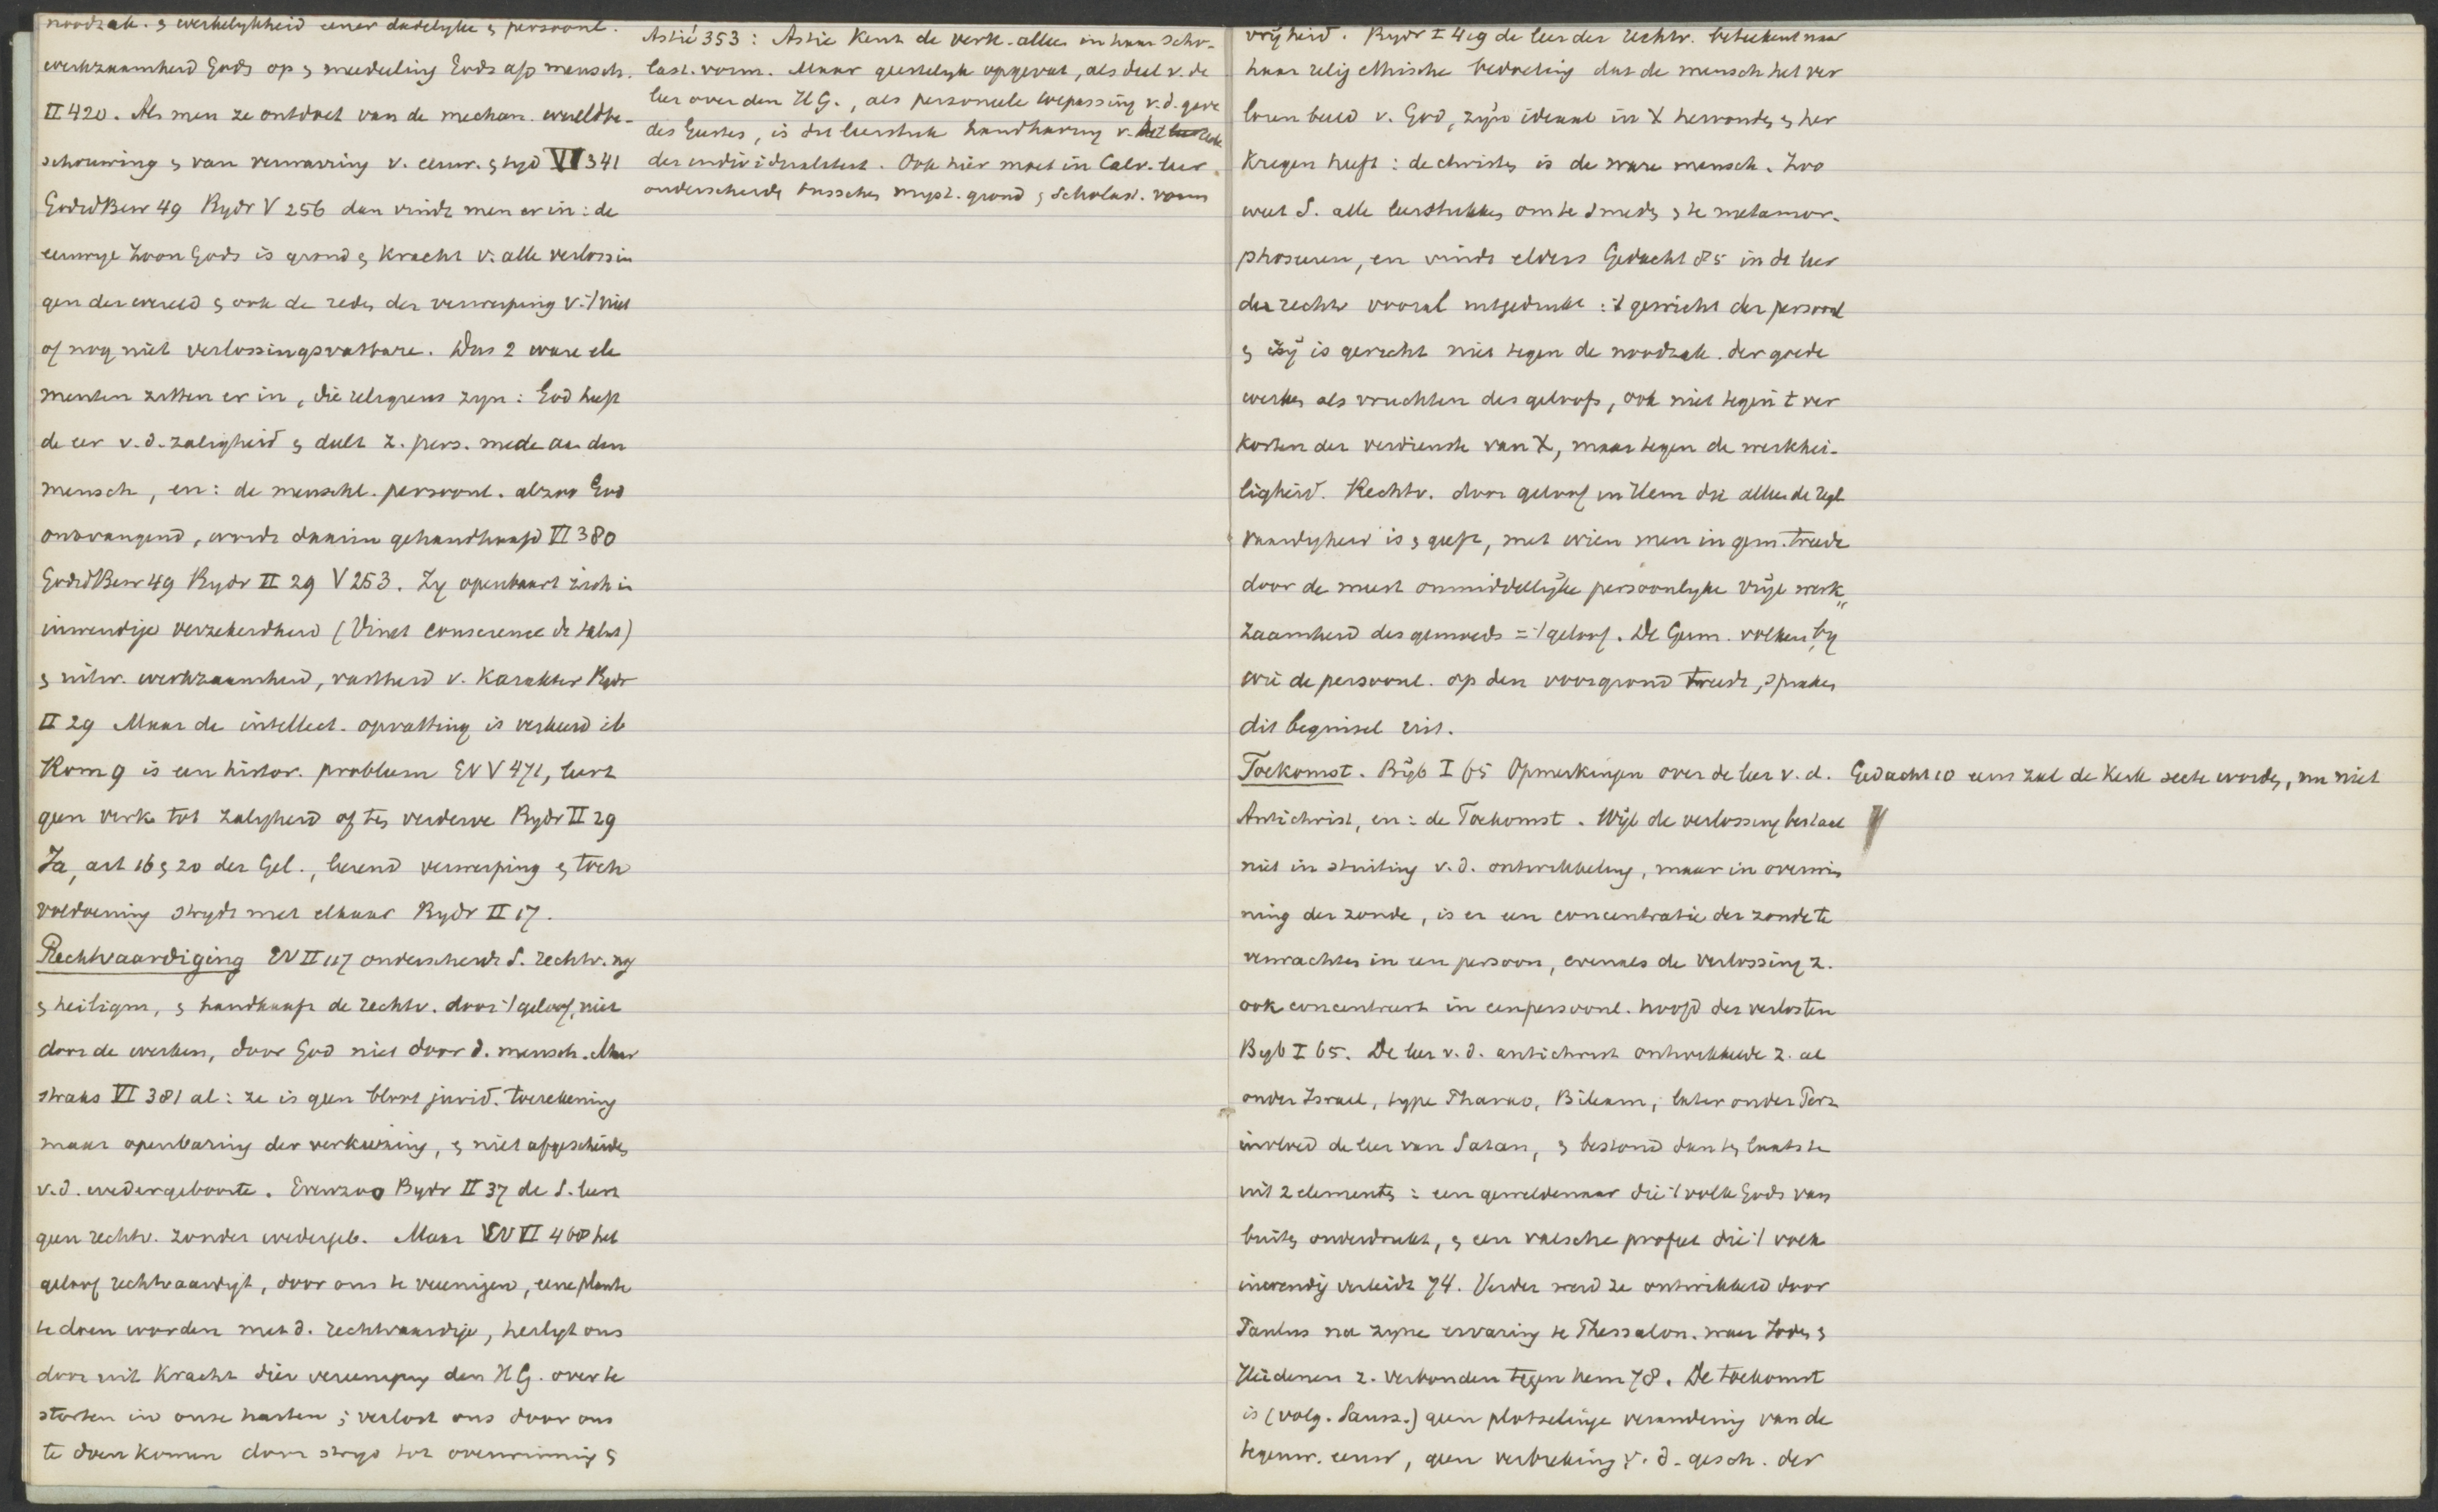 noodzak. & werkelykheid eener dadelyke & persoonl.
werkzaamheid Gods op & mededeeling Gods a/d mensch.
II 420. Als men ze ontdoet van de mechan. wereldbe-
schouwing & van verwarring v. eeuw. & tyd VI 341
GodsdBew 49 Bydr V 256 dan vindt men er in: de
eeuwige Zoon Gods is grond & kracht v. alle verlossin
gen der wereld & ook de reden der verwerping v. 't niet
of nog niet verlossingsvatbare. Dus 2 ware ele
menten zitten er in, die religieus zyn: God heeft
de eer v.d. zaligheid & deelt z. pers. mede aan den
mensch, en: de menschl. persoonl. alzoo God
ontvangend, wordt daarin gehandhaafd VI 380
GodsdBew 49 Bydr II 29 V 253. Zy openbaart zich in
inwendige verzekerdheid (Vinet conscience de salut)
& uitw. werkzaamheid, vastheid v. karakter Bydr
II 29 Maar de intellect. opvatting is verkeerd ib
Rom 9 is een histor. probleem EV V 471, leert
geen verk. tot zaligheid of ten verderve Bydr II 29
Ja, art 16 & 20 der Gel., leerend verwerping & toch
voldoening strydt met elkaar Bydr II 17.
Rechtvaardiging EV II 117 onderscheidt S. rechtv. nog
& heiligm, & handhaaft de rechtv. door 't geloof, niet
door de werken, door God niet door d. mensch. Maar
straks VI 381 al: ze is geen bloot jurid. toerekening
maar openbaring der verkiezing, & niet afgescheiden
v.d. wedergeboorte. Evenzoo Bydr II 37 de S. leert
geen rechtv. zonder wedergeb. Maar EV VI 408 het
geloof rechtvaardigt, door ons te vereenigen, eene plante
te doen worden met d. rechtvaardige, heiligt ons
door uit kracht dier vereeniging den HG. over te
storten in onze harten; verlost ons door ons
te doen komen door stryd tot overwinning &
Astié 353: Astié kent de verk. alleen in haar scho-
last. vorm. Maar geestelyk opgevat, als deel v. de
leer over den HG., als personeele toepassing v.d. gave
des Geestes, is dit leerstuk handhaving v.
der individualiteit. Ook hier moet in Calv. leer
onderscheiden tusschen myst. grond & Scholast. vorm
vrijheid. Bydr I 419 de leer der rechtv. beteekent naar
haar relig ethische bedoeling dat de mensch het ver
loren beeld v. God, zijn ideaal in X hervonden & her
kregen heeft: de christen is de ware mensch. Zoo
weet S. alle leerstukken om te smeden & te metamor-
phoseeren, en vindt elders Gedacht 85 in de leer
der rechtv vooral uitgedrukt: 't gewicht der persoonl
& zij is gericht niet tegen de noodzak. der goede
werken als vruchten des geloofs, ook niet tegen t ver
korten der verdienste van X, maar tegen de werkhei-
ligheid. Rechtv. door geloof in Hem die alleen de regt
vaardigheid is & geeft, met wien men in gem. treedt
door de meest onmiddellijke persoonlyke vrije werk„
zaamheid des gemoeds = 't geloof. De Germ. volken, by
wie de persoonl. op den voorgrond treedt, spraken
dit beginsel uit.
Toekomst. Bijb I 65 Opmerkingen over de leer v. d.
Antichrist, en: de Toekomst. Wijl de verlossing bestaat
niet in stuiting v.d. ontwikkeling, maar in overwin
ning der zonde, is er een concentratie der zonde te
verwachten in een persoon, evenals de verlossing z.
ook concentreert in een persoonl. hoofd der verlosten
Byb I 65. De leer v.d. antichrist ontwikkelde z. al
onder Israel, type Pharao, Bileam, later onder Perz
invloed de leer van Satan, & bestond dan ten laatste
uit 2 elementen: een geweldenaar die 't volk Gods van
buiten onderdrukt, & een valsche profeet die 't volk
inwendig verleidt 74. Verder werd ze ontwikkeld door
Paulus na zyne ervaring te Thessalon. waar Joden &
Heidenen z. verbonden tegen hem 78. De toekomst
is (volg. Sauss.) geen plotselinge verandering van de
tegenw. eeuw, geen verbreking v.d. gesch. der
Gedacht 10 eens zal de Kerk secte worden, nu niet